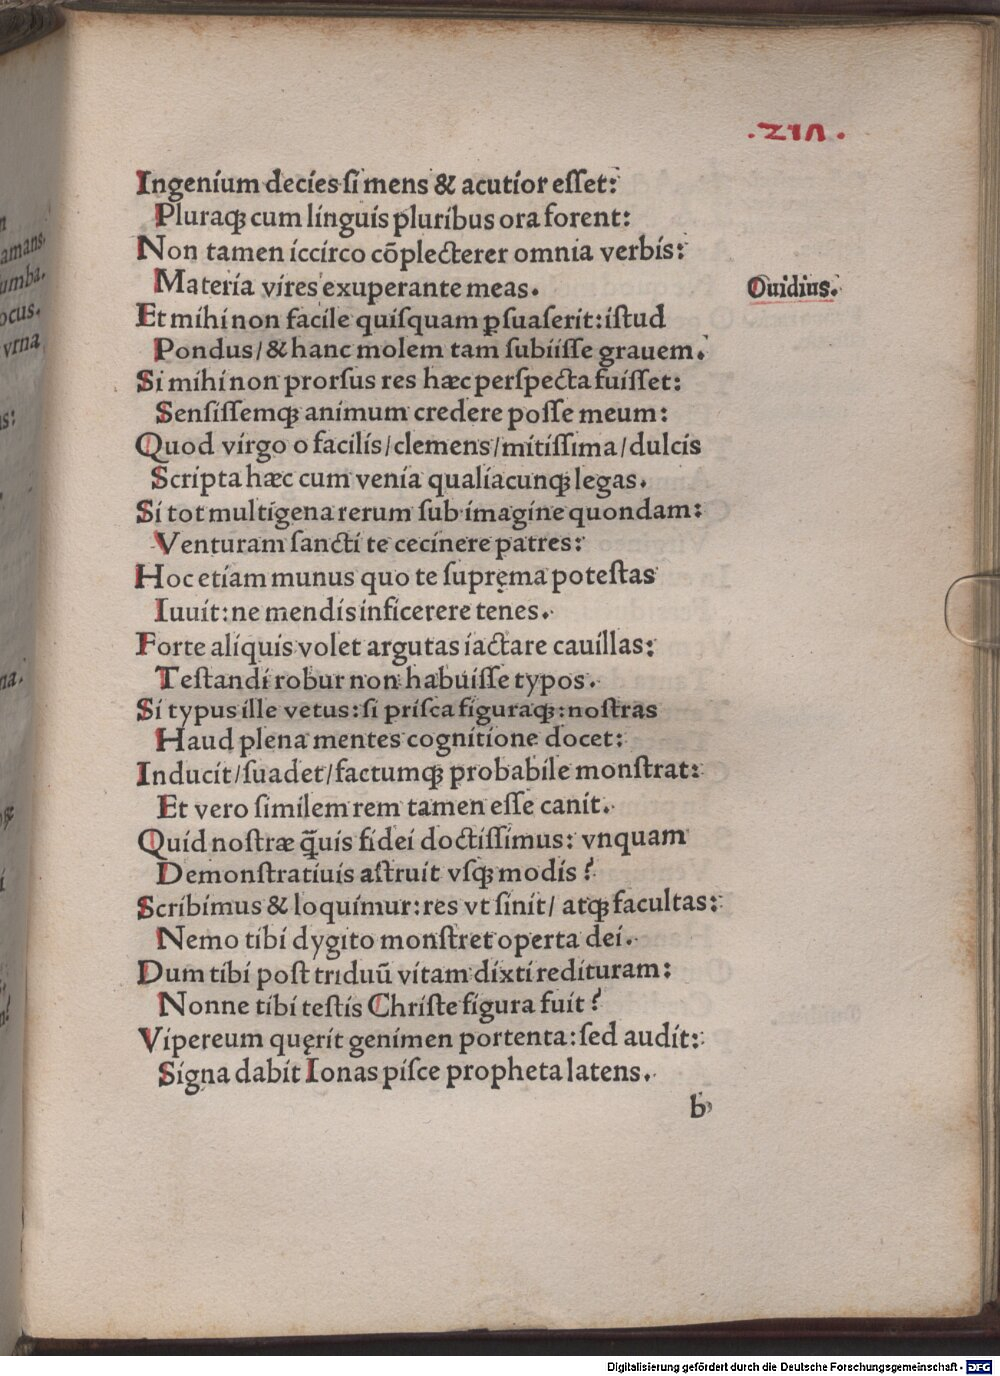 amans.
umba.
ocus.
vrna
Ingenium decies si mens & acutior esset:
Pluraqꝫ cum linguis pluribus ora forent:
Non tamen iccirco cōplecterer omnia verbis:
Materia vires exuperante meas.
Ouidius.
Et mihi non facile quisquam ꝑsuaserit: istud
Pondus/ & hanc molem tam subiisse grauem.
Si mihi non prorsus res hæc perspecta fuisset:
Sensissemqꝫ animum credere posse meum:
Quod virgo o facilis/clemens/mitissima/dulcis
Scripta hæc cum venia qualiacunqꝫ legas.
Si tot multigena rerum sub imagine quondam:
Venturam sancti te cecinere patres:
Hoc etiam munus quo te supręma potestas
Iuuit: ne mendis inficerere tenes.
Forte aliquis volet argutas iactare cauillas:
Testandi robur non habuisse typos.
Si typus ille vetus: si prisca figuraqꝫ: nostras
Haud plena mentes cognitione docet:
Inducit/suadet/factumqꝫ probabile monstrat:
Et vero similem rem tamen esse canit.
Quid nostræ q̃uis fidei doctissimus: vnquam
Demonstratiuis astruit vsqꝫ modis?
Scribimus & loquimur: res vt sinit/ atqꝫ facultas:
Nemo tibi dygito monstret operta dei.
Dum tibi post triduū vitam dixti redituram:
Nonne tibi testis Christe figura fuit?
Vipereum quęrit genimen portenta: sed audit:
Signa dabit Ionas pisce propheta latens.
b
Digitalisierung gefördert durch die Deutsche Forschungsgemeinschaft - DFG